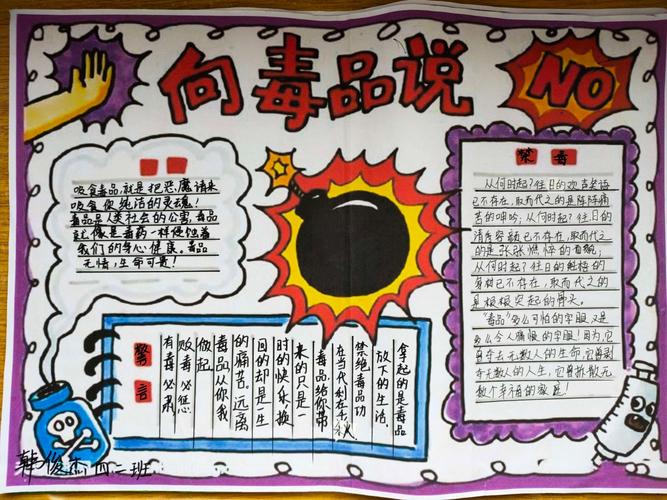 向毒品说 NO
吸食毒品,就是把恶魔请来
吸食你纯洁的灵魂!
毒品是人类社会的公害,毒品
就像是毒药一样侵蚀着
我们的身心健康。毒品
无情,生命可贵!
禁毒
从何时起?往日的欢言笑语
已不存在,取而代之的是阵阵痛
苦的呻吟;从何时起?往日的
清秀容颜已不存在,取而代之
的是张张憔悴的面貌;
从何时起?往日的魁梧的
身材已不存在,取而代之的
是根根突起的骨头。
"毒品"多么可怕的字眼又是
多么令人痛恨的字眼!因为,它
曾夺去无数人的生命,它曾剥
夺无数人的人生,它曾拆散无
数个幸福的家庭!
警言
拿起的是毒品
放下的生活
禁绝毒品功
在当代利在千秋
毒品给你带
来的只是一
时的快乐换
回的却是一生
的痛苦,远离
毒品从你我
做起
败毒必惩
有毒必肃
韩俊杰四二班